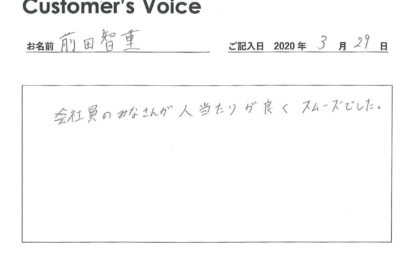 Customer's Voice
お名前 前田智重 ご記入日 2020年 3月 29日
会社員のみなさんが人当たりが良くスムーズでした。